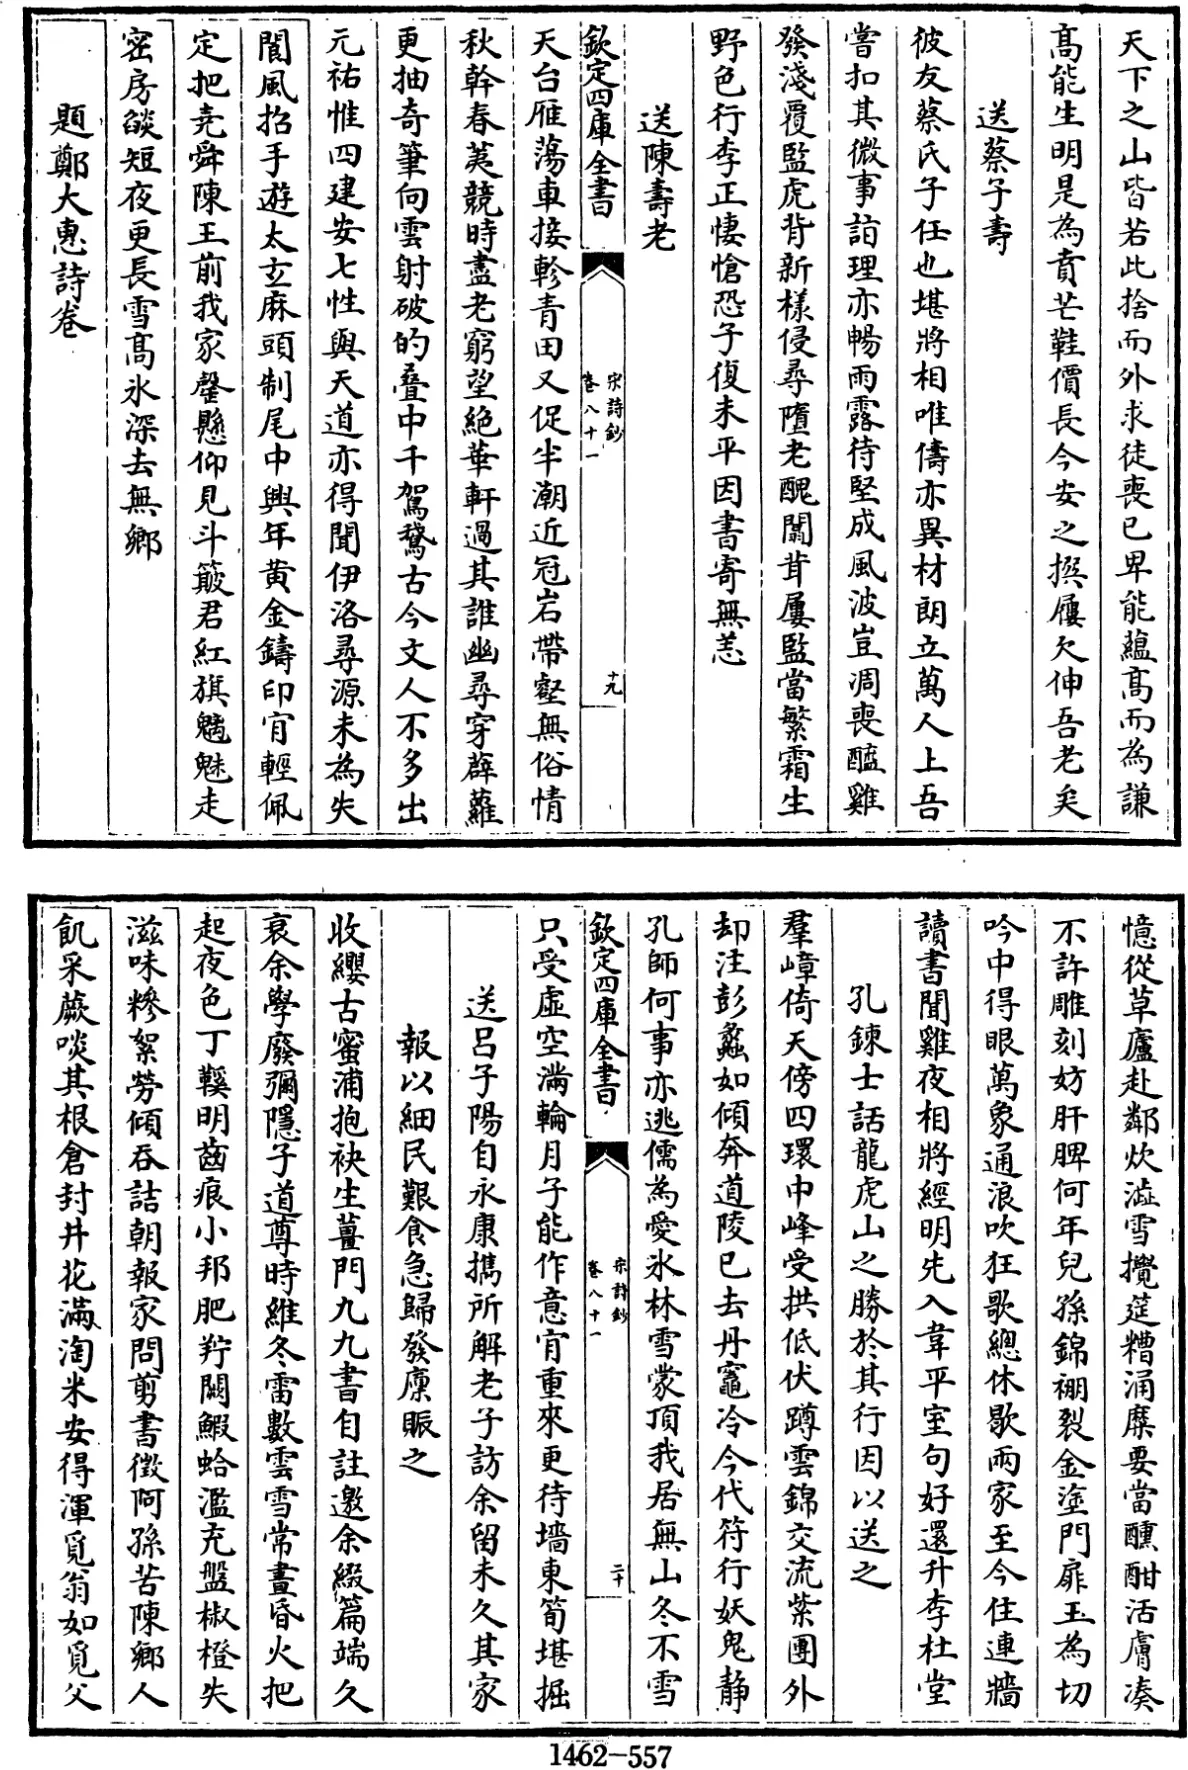 天下之山皆若此捨而外求徒喪已卑能蘊髙而為謙
髙能生明是為賁芒鞋價長今安之撰屨欠伸吾老矣
送蔡子壽
彼友蔡氏子任也堪將相唯儔亦異材朗立萬人上吾
嘗扣其微事詣理亦暢雨露待堅成風波豈凋喪醯雞
發淺覆監虎背新様侵尋墮老醜闒茸屢監當繁霜生
野色行李正悽愴恐子復未平因書寄無恙
送陳壽老
欽定四庫全書
宋詩鈔
卷八十一
十九
天台雁蕩車接軫青田又促半潮近冠岩帶壑無俗情
秋幹春荑競時盡老窮望絶華軒過其誰幽尋穿薜蘿
更抽奇筆向雲射破的疊中千駕鵞古今文人不多出
元祐惟四建安七性與天道亦得聞伊洛尋源未為失
閶風招手遊太玄麻頭制尾中興年黄金鑄印肎輕佩
定把堯舜陳王前我家罄懸仰見斗簸君紅旗魑魅走
密房燄短夜更長雪髙氷深去無鄉
題鄭大惠詩卷
憶從草廬赴鄰炊澁雪攪莚糟涌糜要當醺酣活膚凑
不許雕刻妨肝脾何年兒孫錦裯裂金塗門扉玉為切
吟中得眼萬象通浪吹狂歌總休歇兩家至今住連牆
讀書聞雞夜相將經明先入韋平室句好還升李杜堂
孔鍊士話龍虎山之勝於其行因以送之
羣嶂倚天傍四環中峰受拱低伏蹲雲錦交流紫團外
却注彭蠡如傾奔道陵已去丹竈冷今代符行妖鬼静
孔師何事亦逃儒為愛氷林雪蒙頂我居無山冬不雪
欽定四庫全書
宋詩鈔
卷八十一
二十
只受虚空滿輪月子能作意肎重來更待墻東筍堪掘
送吕子陽自永康攜所解老子訪余留未久其家
報以細民艱食急歸發廪賑之
收纓古蜜浦抱袂生薑門九九書自註邀余綴篇端久
衰余學廢彌隠子道尊時維冬雷數雲雪常晝昏火把
起夜色丁鞵明齒痕小邦肥羜闕鰕蛤濫充盤椒橙失
滋味糝絮勞傾吞詰朝報家問剪書徵阿孫苦陳鄉人
飢采蕨啖其根倉封井花滿淘米安得渾覓翁如覓父
1462-557